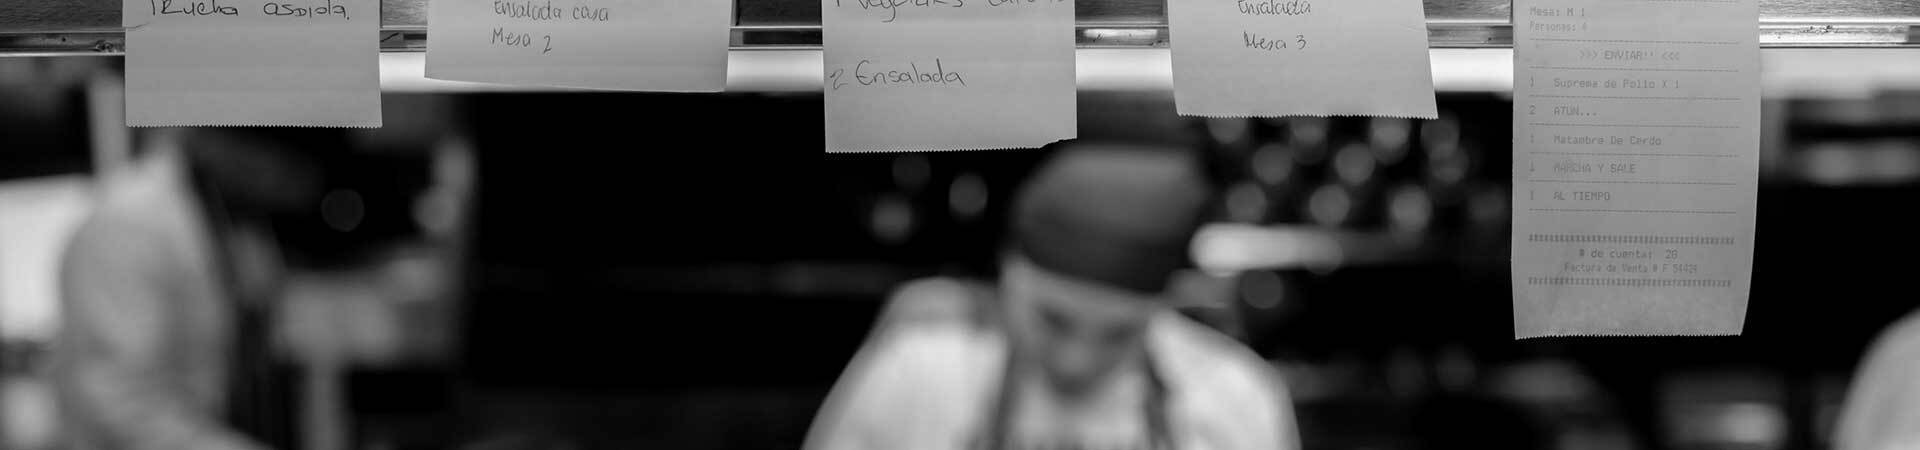 Ensalada casa
Mesa 2
2 Ensalada
Ensalada
Mesa 3
Mesa: M 1
Personas: 6
>>> ENVIAR!! <<<
1 Suprema de Pollo X 1
2 ATUN...
1 Matambre De Cerdo
1 MARCHA Y SALE
1 AL TIEMPO
# de cuenta: 20
Factura de Venta # F 54424